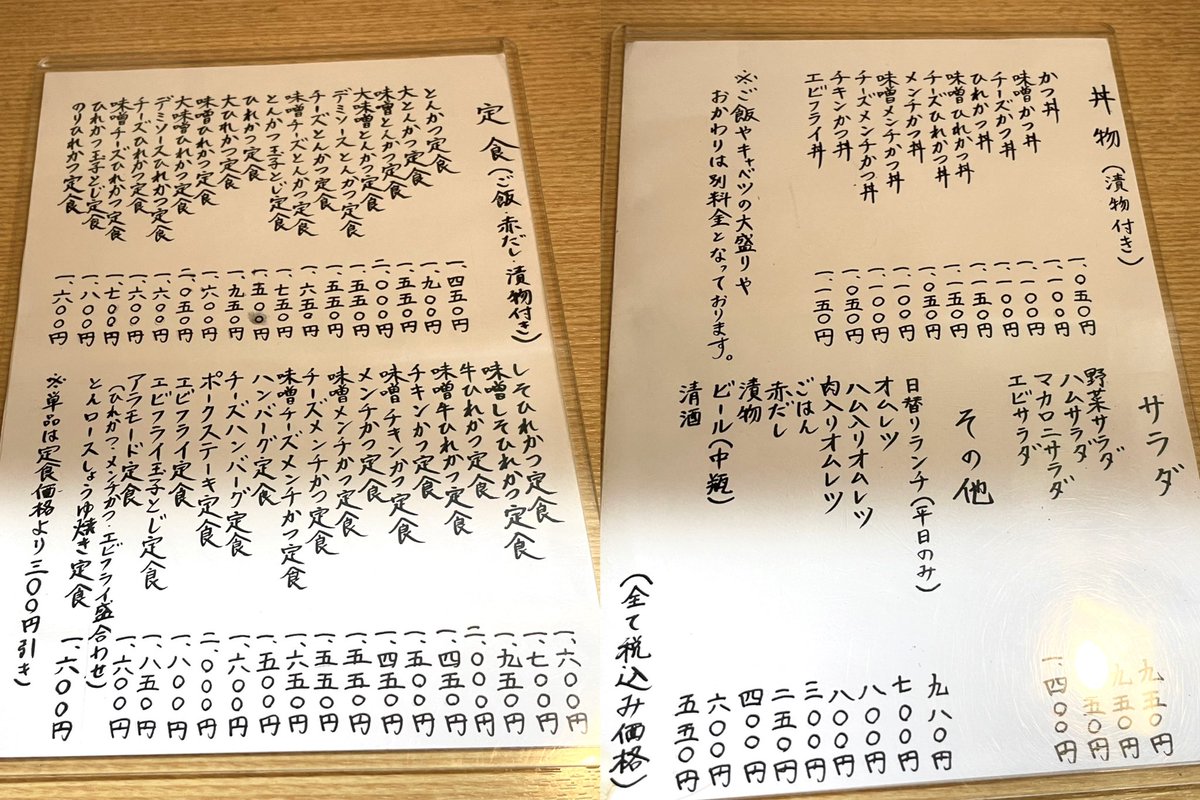 定食(ご飯・赤だし・漬物付き)
とんかつ定食 一、四五〇円
大とんかつ定食 一、九〇〇円
味噌とんかつ定食 一、五五〇円
大味噌とんかつ定食 二、〇〇〇円
デミソースとんかつ定食 一、五五〇円
チーズとんかつ定食 一、五五〇円
味噌チーズとんかつ定食 一、六五〇円
とんかつ玉子とじ定食 一、七五〇円
ひれかつ定食 一、五〇〇円
大ひれかつ定食 一、九五〇円
味噌ひれかつ定食 一、六〇〇円
大味噌ひれかつ定食 二、〇五〇円
デミソースひれかつ定食 一、六〇〇円
チーズひれかつ定食 一、六〇〇円
味噌チーズひれかつ定食 一、七〇〇円
ひれかつ玉子とじ定食 一、八〇〇円
のりひれかつ定食 一、六〇〇円
しそひれかつ定食 一、六〇〇円
味噌しそひれかつ定食 一、七〇〇円
牛ひれかつ定食 一、九五〇円
味噌牛ひれかつ定食 二、〇〇〇円
チキンかつ定食 一、四五〇円
味噌チキンかつ定食 一、五〇〇円
メンチかつ定食 一、四五〇円
味噌メンチかつ定食 一、五五〇円
チーズメンチかつ定食 一、五五〇円
味噌チーズメンチかつ定食 一、六五〇円
ハンバーグ定食 一、五〇〇円
チーズハンバーグ定食 一、六〇〇円
ポークステーキ定食 二、〇〇〇円
エビフライ定食 一、八〇〇円
エビフライ玉子とじ定食 一、八五〇円
アラモード定食 一、六〇〇円
(ひれかつ・メンチかつ・エビフライ盛合わせ)
とんロースしょうゆ焼き定食 一、六〇〇円
※単品は定食価格より三〇〇円引き
丼物(漬物付き)
かつ丼 一、〇五〇円
味噌かつ丼 一、一〇〇円
チーズかつ丼 一、一〇〇円
ひれかつ丼 一、一〇〇円
味噌ひれかつ丼 一、一五〇円
チーズひれかつ丼 一、一五〇円
メンチかつ丼 一、〇五〇円
味噌メンチかつ丼 一、一〇〇円
チーズメンチかつ丼 一、一〇〇円
チキンかつ丼 一、〇五〇円
エビフライ丼 一、一五〇円
※ご飯やキャベツの大盛りや
おかわりは別料金となっております。
サラダ
野菜サラダ 九五〇円
ハムサラダ 九五〇円
マカロニサラダ 五〇円
エビサラダ 一、四〇〇円
その他
日替りランチ(平日のみ) 九八〇円
オムレツ 七〇〇円
ハム入りオムレツ 八〇〇円
肉入りオムレツ 八〇〇円
ごはん 三〇〇円
赤だし 二五〇円
漬物 四〇〇円
ビール(中瓶) 六〇〇円
清酒 五五〇円
(全て税込み価格)